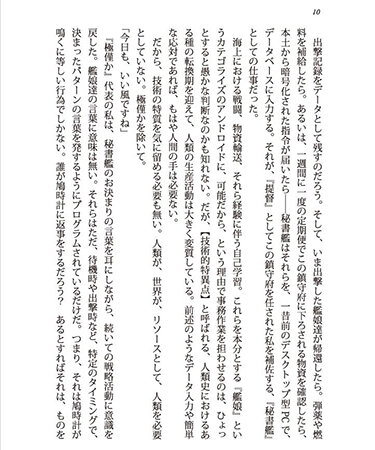 10
出撃記録をデータとして残すのだろう。そして、いま出撃した艦娘達が帰還したら。弾薬や燃
料を補給したら。あるいは、一週間に一度の定期便でこの鎮守府に下ろされる物資を確認したら、
本土から暗号化された指令が届いたら――秘書艦はそれらを、一昔前のデスクトップ型PCで、
データベースに入力する。それが、『提督』としてこの鎮守府を任された私を補佐する、『秘書艦』
としての仕事だった。
海上における戦闘、物資輸送、それら経験に伴う自己学習。これらを本分とする『艦娘』とい
うカテゴライズのアンドロイドに、可能だから、という理由で事務作業を担わせるのは、ひょっ
とすると愚かな判断なのかも知れない。だが、【技術的特異点】と呼ばれる、人類史におけるあ
る種の転換期を迎えて、人類の生産活動は大きく変質している。前述のようなデータ入力や簡単
な応対であれば、もはや人間の手は必要ない。
だから、技術の特質を気に留める必要も無い。人類が、世界が、リソースとして、人類を必要
としていない。極僅かを除いて。
「今日も、いい風ですね」
『極僅か』代表の私は、秘書艦のお決まりの言葉を耳にしながら、続いての戦略活動に意識を
戻した。艦娘達の言葉に意味は無い。それらはただ、待機時や出撃時など、特定のタイミングで、
決まったパターンの言葉を発するようにプログラムされているだけだ。つまり、それは鳩時計が
鳴くに等しい行為でしかない。誰が鳩時計に返事をするだろう？　あるとすればそれは、ものを